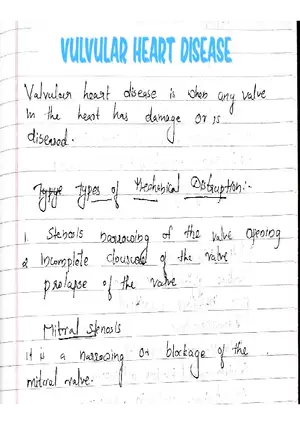 VULVULAR HEART DISEASE
Valvular heart disease is when any valve
in the heart has damage or is
diseased.
Types of Mechanical Disruption:-
1. Stenosis narrowing of the valve opening
2 Incomplete clousure of the valve
prolapse of the valve
Mitral stenosis
it is a narrowing or blockage of the
mitral valve.